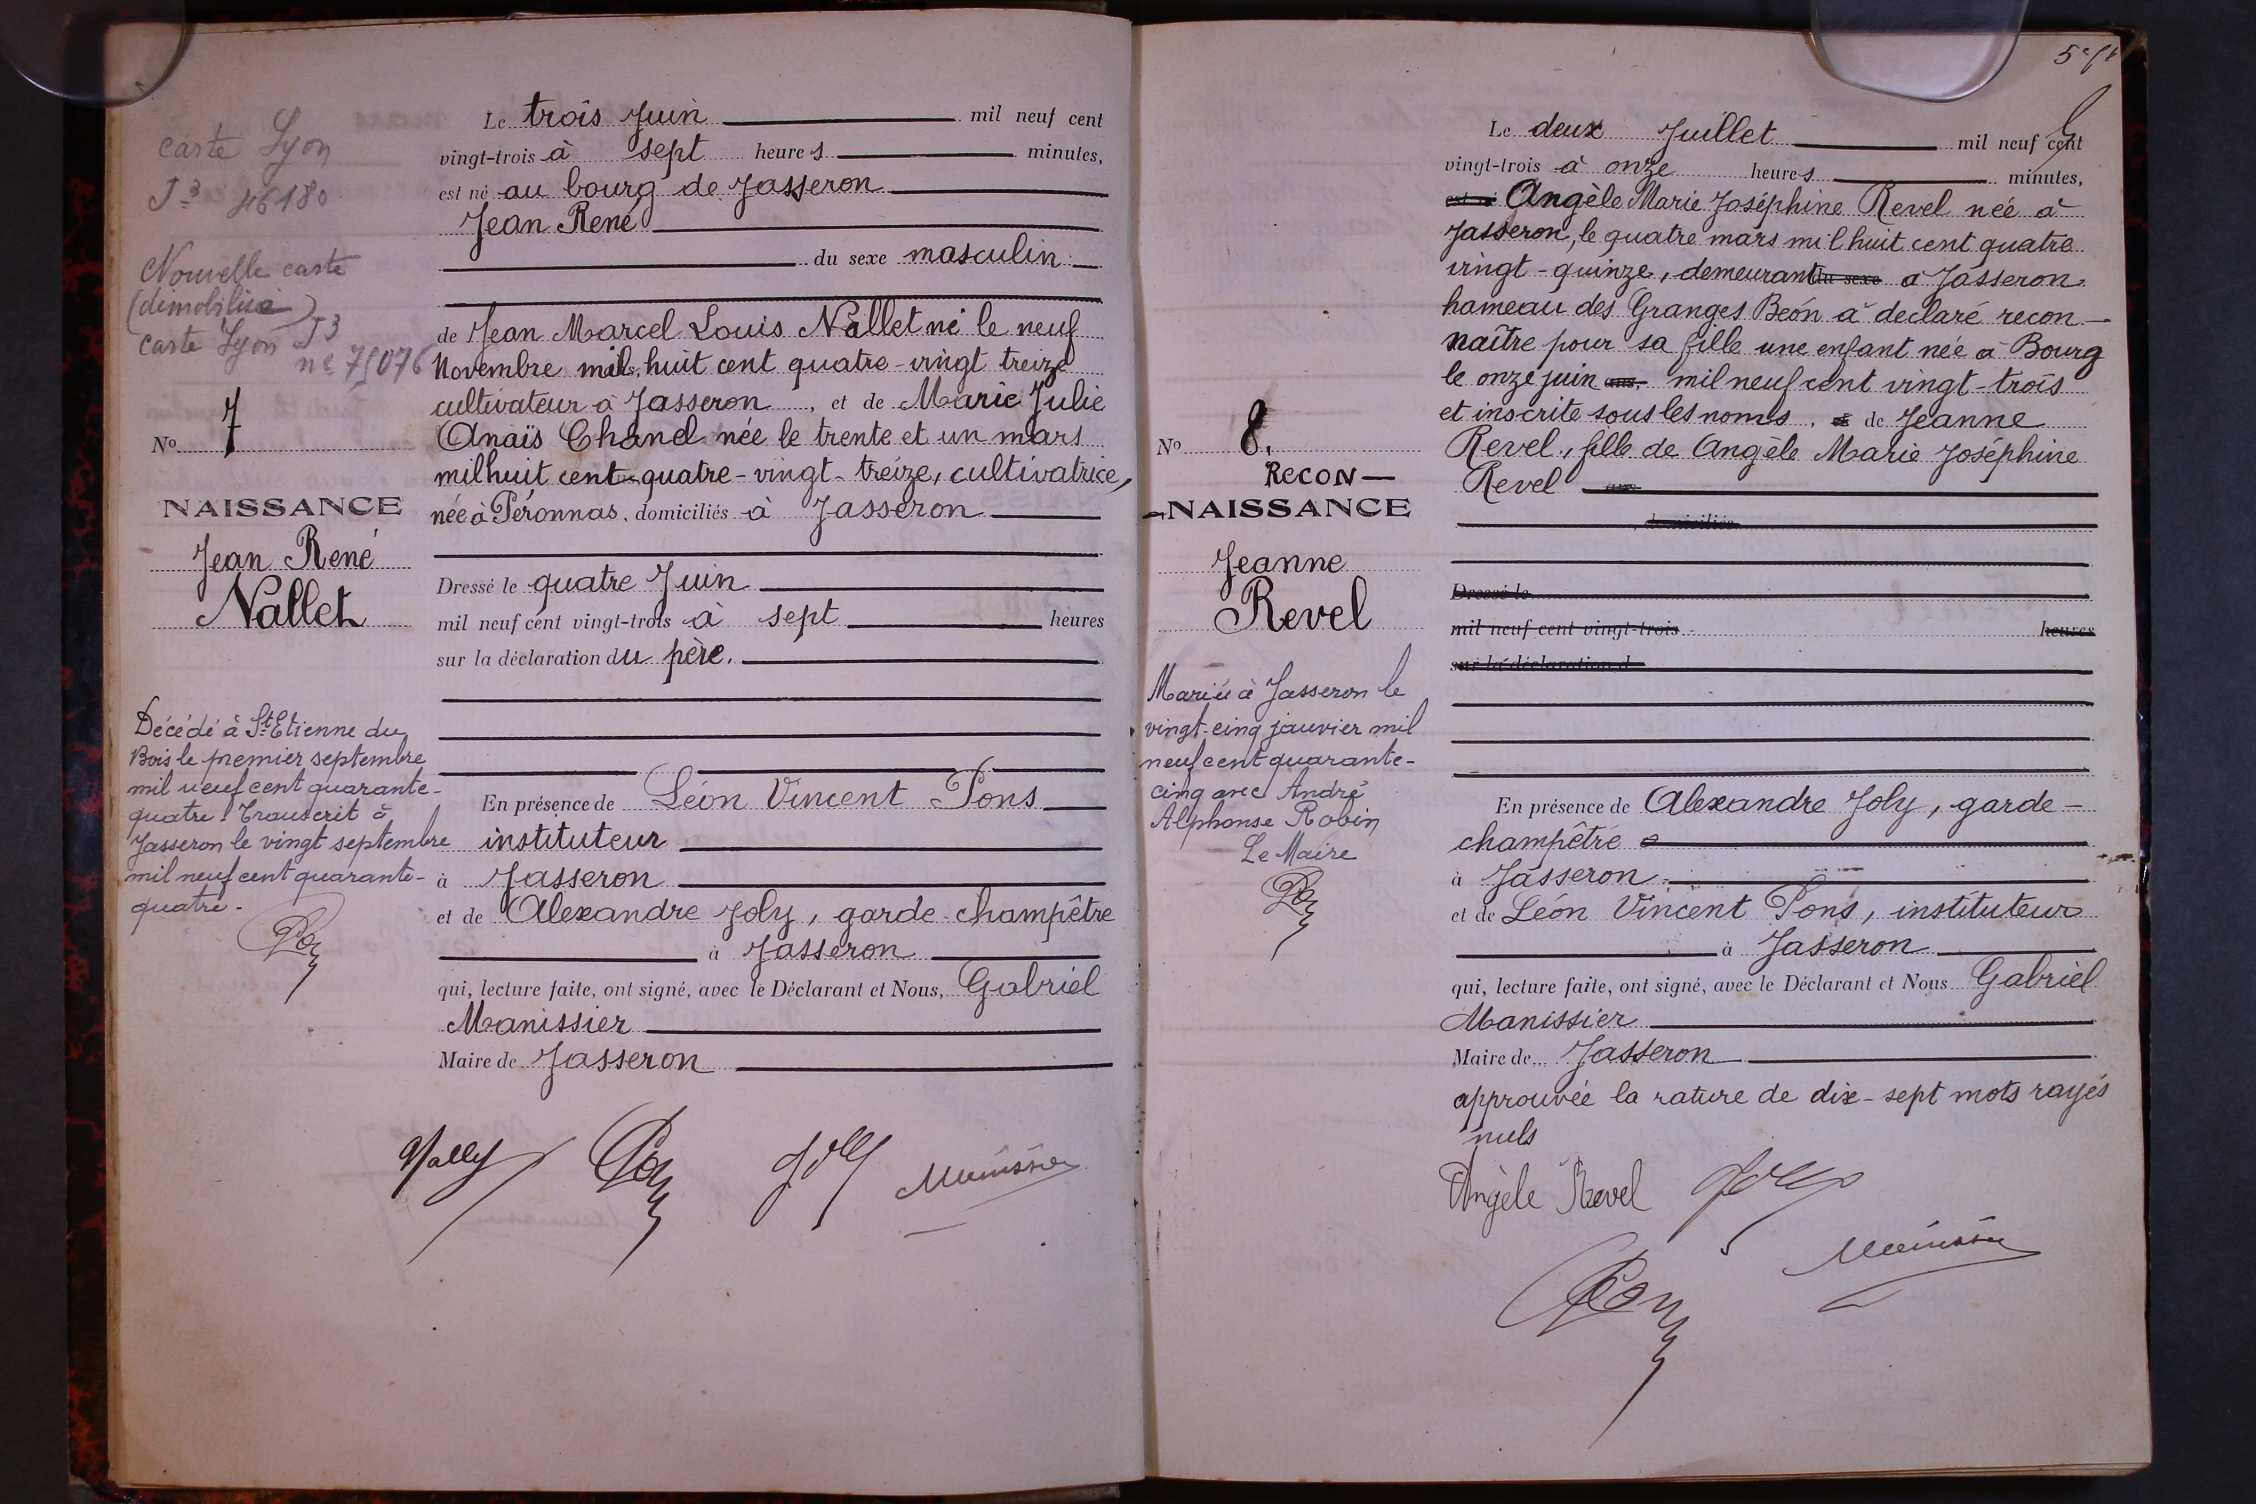 carte Lyon
J3 46180
Nouvelle carte
(démobilisé)
carte Lyon J3
n° 75076
No 7
NAISSANCE
Jean René
Nallet
Décédé à St Etienne du
Bois le premier septembre
mil neuf cent quarante-
quatre. Transcrit à
Jasseron le vingt septembre
mil neuf cent quarante-
quatre.
Le trois Juin mil neuf cent
vingt-trois à sept heures minutes,
est né au bourg de Jasseron
Jean René
du sexe masculin
de Jean Marcel Louis Nallet né le neuf
Novembre mil huit cent quatre-vingt treize
cultivateur à Jasseron, et de Marie Julie
Anaïs Chanel née le trente et un mars
mil huit cent quatre-vingt-treize, cultivatrice,
née à Péronnas, domiciliés à Jasseron
Dressé le quatre Juin
mil neuf cent vingt-trois à sept heures
sur la déclaration du père.
En présence de Léon Vincent Pons
instituteur
à Jasseron
et de Alexandre Joly, garde-champêtre
à Jasseron
qui, lecture faite, ont signé, avec le Déclarant et Nous, Gabriel
Manissier
Maire de Jasseron
Pons Joly Manissier
No 8.
RECON-
-NAISSANCE
Jeanne
Revel
Mariée à Jasseron le
vingt-cinq janvier mil
neuf cent quarante-
cinq avec André
Alphonse Robin
Le Maire
Le deux Juillet mil neuf cent
vingt-trois à onze heures minutes,
est né Angèle Marie Joséphine Revel née à
Jasseron, le quatre mars mil huit cent quatre
vingt-quinze, demeurant du sexe à Jasseron
hameau des Granges Béon à déclaré recon-
naître pour sa fille une enfant née à Bourg
le onze juin ans, mil neuf cent vingt-trois
et inscrite sous les noms, et de Jeanne
Revel, fille de Angèle Marie Joséphine
Revel ans
, domiciliés
Dressé le
mil neuf cent vingt-trois heures
sur la déclaration d
En présence de Alexandre Joly, garde-
champêtre
à Jasseron
et de Léon Vincent Pons, instituteur
à Jasseron
qui, lecture faite, ont signé, avec le Déclarant et Nous Gabriel
Manissier
Maire de Jasseron
approuvée la rature de dix-sept mots rayés
nuls
Angèle Revel Joly
Manissier
Pons